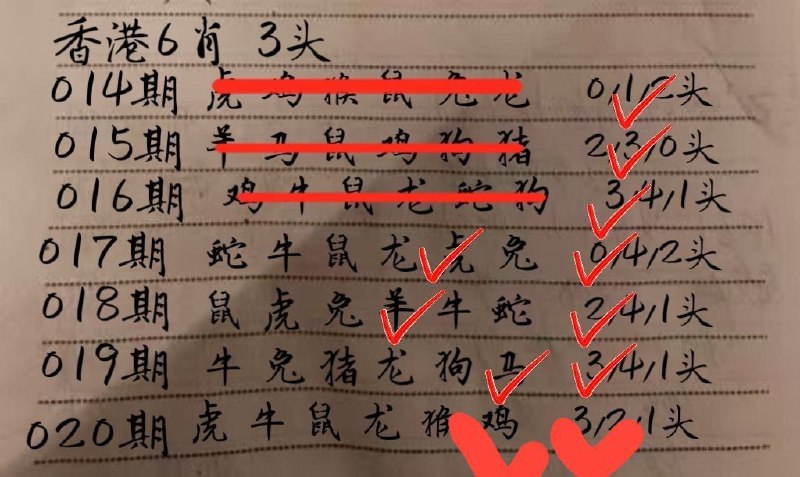 香港6肖 3头
014期 虎鸡猴鼠兔龙 0,1,2头
015期 羊马鼠鸡狗猪 2,3,0头
016期 鸡牛鼠龙蛇狗 3,4,1头
017期 蛇牛鼠龙虎兔 0,4,2头
018期 鼠虎兔羊牛蛇 2,4,1头
019期 牛兔猪龙狗马 3,4,1头
020期 虎牛鼠龙猴鸡 3,2,1头